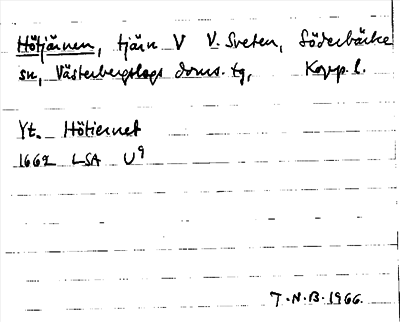 Hötjärnen, tjärn V V. Sveten, Söderbärke
sn, Västerbergslags doms. tg, Kopp. l.
Yt. Hötiernet
1662 LSA U9
T.N.B. 1966.